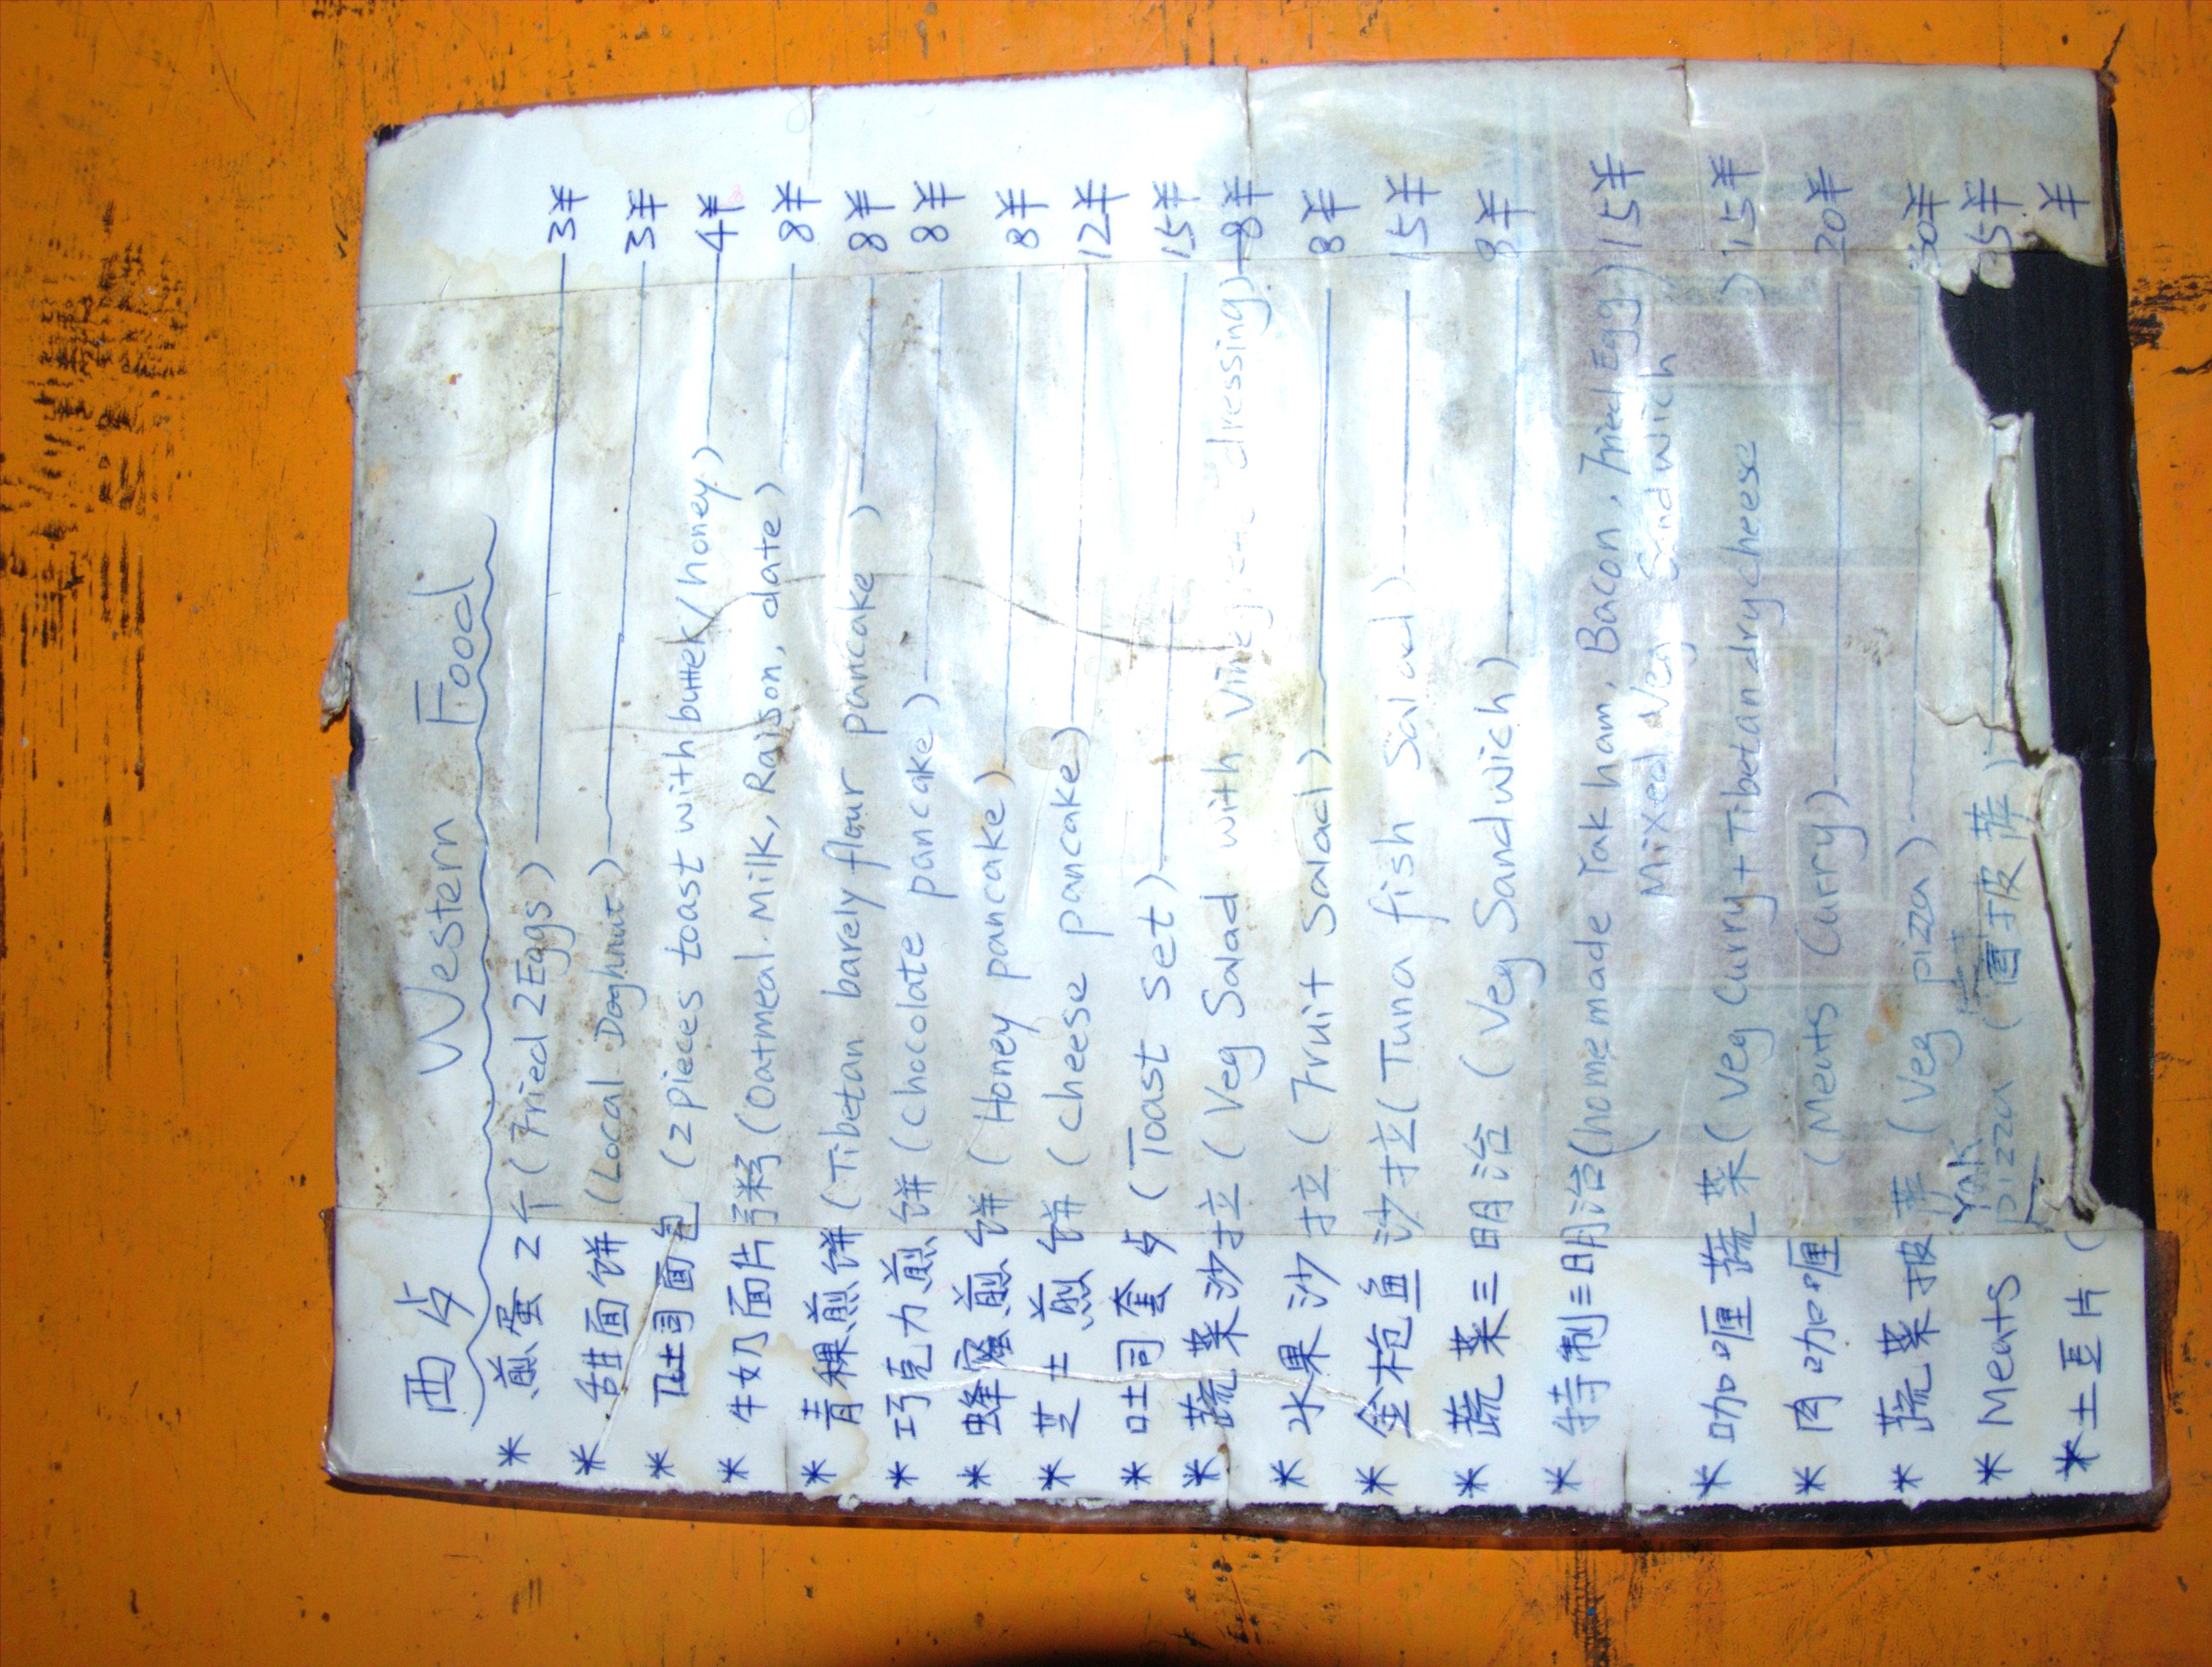 西歺 Western Food
* 煎蛋2个 (Fried 2Eggs) 3¥
* 甜面饼 (Local Doghnut) 3¥
* 吐司面包 (2 pieces toast with butter/honey) 4¥
* 牛奶面片籽 (Oatmeal. Milk, Raison, date) 8¥
* 青稞煎饼 (Tibetan barely flour pancake) 8¥
* 巧克力煎饼 (chocolate pancake) 8¥
* 蜂蜜煎饼 (Honey pancake) 8¥
* 芝士煎饼 (cheese pancake) 12¥
* 吐司套歺 (Toast set) 15¥
* 蔬菜沙拉 (Veg Salad with dressing) 8¥
* 水果沙拉 (Fruit Salad) 8¥
* 金枪鱼沙拉 (Tuna fish Salad) 15¥
* 蔬菜三明治 (Veg Sandwich) 8¥
* 特制三明治 (home made Yak ham, Bacon, Fried Egg) 15¥
Mixed Veg Sandwich
* 咖喱蔬菜 (Veg Curry + Tibetan dry cheese) 15¥
* 肉咖喱 (Meats Curry) 20¥
* 蔬菜披萨 (Veg pizza) 30¥
* Meats Yak pizza (披萨) 5¥
* 土豆片 ( ¥